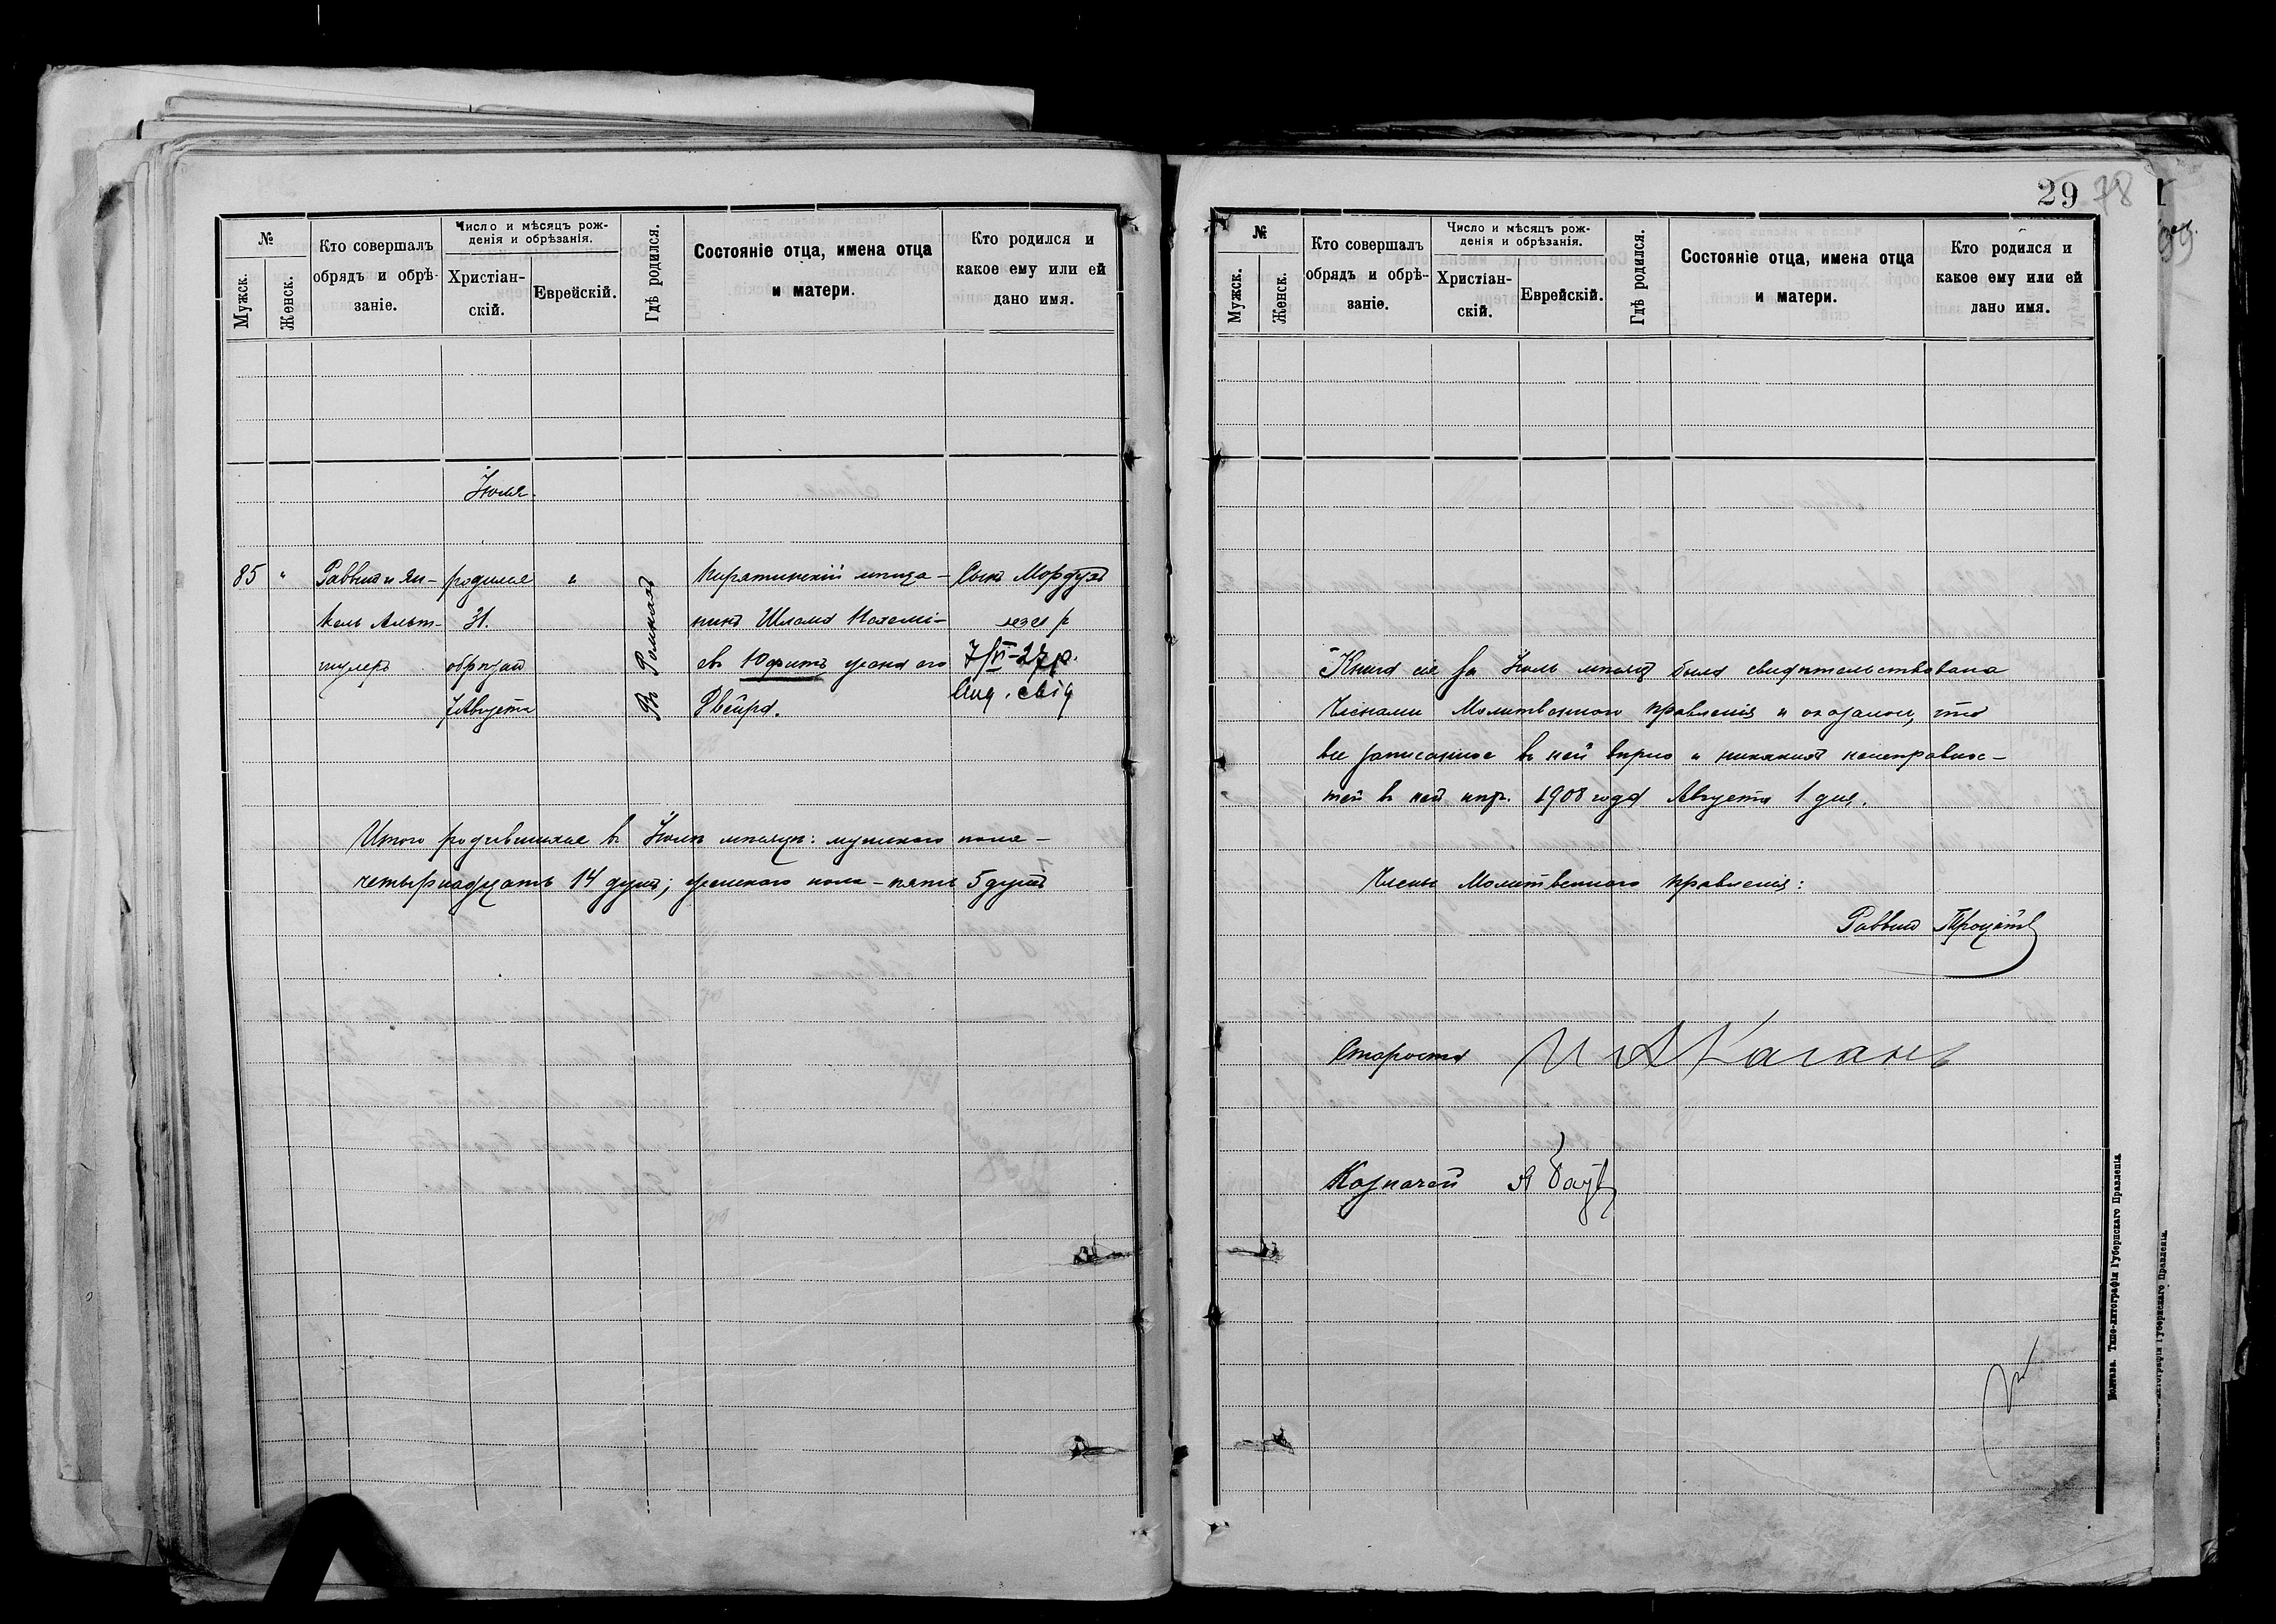 №
Мужск.
Женск.
Кто совершалъ
обрядъ и обрѣ-
заніе.
Число и мѣсяцъ рож-
денія и обрѣзанія.
Христіан-
скій.
Еврейскій.
Гдѣ родился.
Состояніе отца, имена отца
и матери.
Кто родился и
какое ему или ей
дано имя.
Іюля.
85 " Раввинъ и Ян-
кель Альт-
шулеръ
родился
31.
обрѣзан
7 Августа
"
Въ Ромнахъ
Пирятинскій мѣща-
нинъ Шлома
евъ Юфитъ жена его
Двейра.
Сынъ Мордухъ
7/VI-27 р.
Вид. свід
Итого родившихся въ Іюлѣ мѣсяцѣ: мужскаго пола –
четырнадцать 14 душъ; женскаго пола – пять 5 душъ
29 78
№
Мужск.
Женск.
Кто совершалъ
обрядъ и обрѣ-
заніе.
Число и мѣсяцъ рож-
денія и обрѣзанія.
Христіан-
скій.
Еврейскій.
Гдѣ родился.
Состояніе отца, имена отца
и матери.
Кто родился и
какое ему или ей
дано имя.
Книга сія за Іюль мѣсяцъ была свидѣтельствована
Членами Молитвеннаго Правленія и оказалось, что
все записанное въ ней вѣрно и никакихъ неисправнос-
тей въ ней нѣтъ. 1908 года Августа 1 дня.
Члены Молитвеннаго Правленія:
Раввинъ
Староста Каганъ
Казначей
Полтава. Типо-литографія Губернскаго Правленія